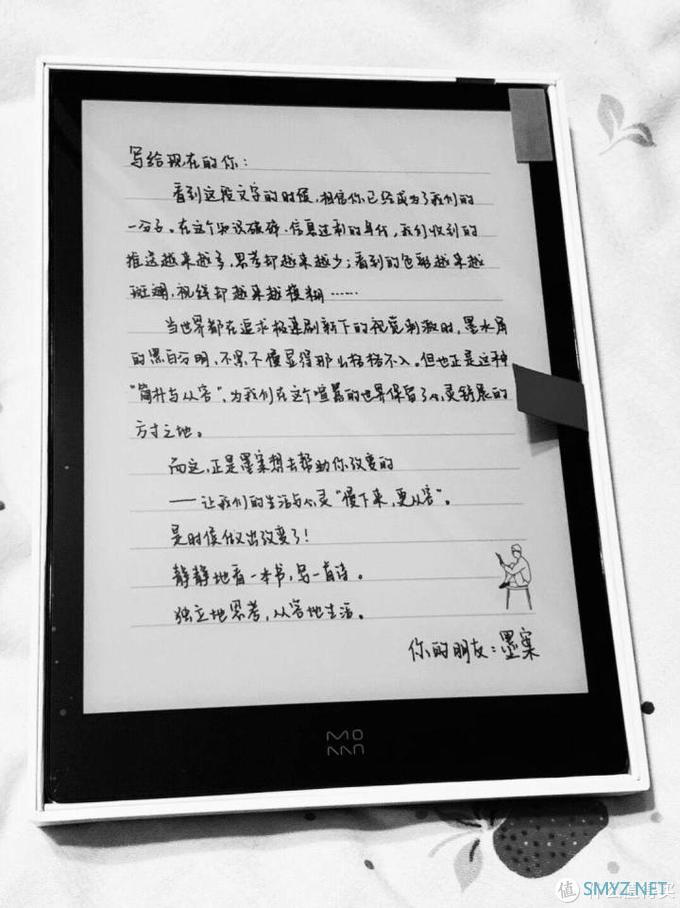 写给现在的你：
看到这段文字的时候，相信你已经成为了我们的
一分子。在这个知识破碎、信息过剩的年代，我们收到的
推送越来越多，思考却越来越少；看到的色彩越来越
斑斓，视线却越来越模糊……
当世界都在追求极速刷新下的视觉刺激时，墨水屏
的黑白分明，不紧不慢显得那么格格不入。但也正是这种
“简朴与从容”，为我们在这个喧嚣的世界保留了心灵舒展的
方寸之地。
而这，正是墨案想去帮助你改变的
——让我们的生活与心灵“慢下来，更从容”。
是时候做出改变了！
静静地看一本书，写一首诗。
独立地思考，从容地生活。
你的朋友：墨案
MO
AN
值 SMYZ.NET